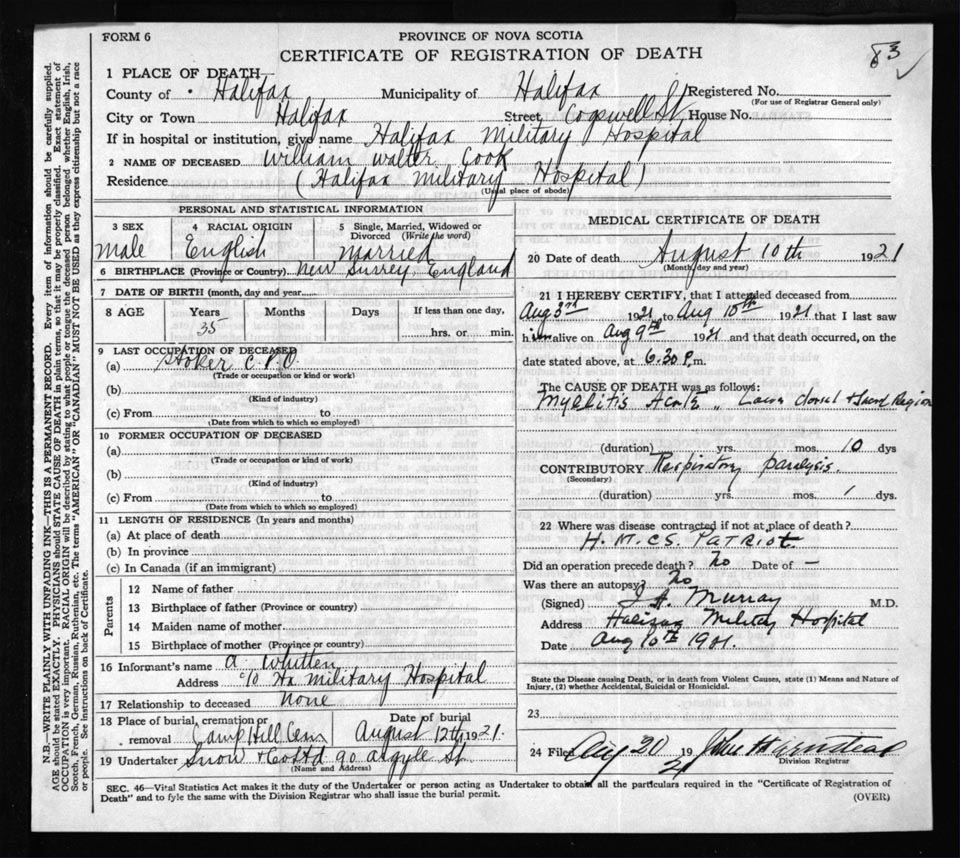 FORM 6
PROVINCE OF NOVA SCOTIA
CERTIFICATE OF REGISTRATION OF DEATH
83
1 PLACE OF DEATH
County of Halifax Municipality of Halifax Registered No.
(For use of Registrar General only)
City or Town Halifax Street Cogswell St House No.
If in hospital or institution, give name Halifax Military Hospital
2 NAME OF DECEASED William Walter Cook
Residence (Halifax Military Hospital)
(Usual place of abode)
PERSONAL AND STATISTICAL INFORMATION
3 SEX 4 RACIAL ORIGIN 5 Single, Married, Widowed or Divorced (Write the word)
Male English Married
6 BIRTHPLACE (Province or Country) New Surrey, England
7 DATE OF BIRTH (month, day and year)
8 AGE Years Months Days If less than one day,
35 hrs. or min.
9 LAST OCCUPATION OF DECEASED
(a) Stoker C.P.O.
(Trade or occupation or kind or work)
(b)
(Kind of industry)
(c) From to
(Date from which to which so employed)
10 FORMER OCCUPATION OF DECEASED
(a)
(Trade or occupation or kind of work)
(b)
(Kind of industry)
(c) From to
(Date from which to which so employed)
11 LENGTH OF RESIDENCE (In years and months)
(a) At place of death
(b) In province
(c) In Canada (if an immigrant)
Parents
12 Name of father
13 Birthplace of father (Province or country)
14 Maiden name of mother
15 Birthplace of mother (Province or country)
16 Informant's name A Whitten
Address c/o Hx Military Hospital
17 Relationship to deceased None
18 Place of burial, cremation or removal Camp Hill Cem Date of burial August 12th 1921.
19 Undertaker Snow & Co Ltd 90 Argyle St
(Name and Address)
MEDICAL CERTIFICATE OF DEATH
20 Date of death August 10th 1921
(Month, day and year)
21 I HEREBY CERTIFY, that I attended deceased from
Aug 3rd 1921 to Aug 10th 1921 that I last saw
him alive on Aug 9th 1921 and that death occurred, on the
date stated above, at 6.30 P.m.
The CAUSE OF DEATH was as follows:
Myelitis Acute, Lower dorsal & Region
(duration) yrs. mos. 10 dys
CONTRIBUTORY Respiratory paralysis.
(Secondary)
(duration) yrs. mos. 1 dys.
22 Where was disease contracted if not at place of death?
H.M.C.S. PATRIOT
Did an operation precede death? No Date of —
Was there an autopsy? No
(Signed) Murray M.D.
Address Halifax Military Hospital
Date Aug 10th 1921.
State the Disease causing Death, or in death from Violent Causes, state (1) Means and Nature of
Injury, (2) whether Accidental, Suicidal or Homicidal.
23
24 Filed Aug 20 19 21
Division Registrar
SEC. 46—Vital Statistics Act makes it the duty of the Undertaker or person acting as Undertaker to obtain all the particulars required in the "Certificate of Registration of
Death" and to fyle the same with the Division Registrar who shall issue the burial permit.
(OVER)
N.B.—WRITE PLAINLY WITH UNFADING INK—THIS IS A PERMANENT RECORD. Every item of information should be carefully supplied.
AGE should be stated EXACTLY. PHYSICIANS should STATE CAUSE OF DEATH in plain terms, so that it may be properly classified. Exact statement of
OCCUPATION is very important. RACIAL ORIGIN will be described by stating to what people or tongue the deceased person belonged whether English, Irish,
Scotch, French, German, Russian, Ruthenian, etc. The terms "AMERICAN" OR "CANADIAN" MUST NOT BE USED as they express citizenship but not a race
or people. See instructions on back of Certificate.